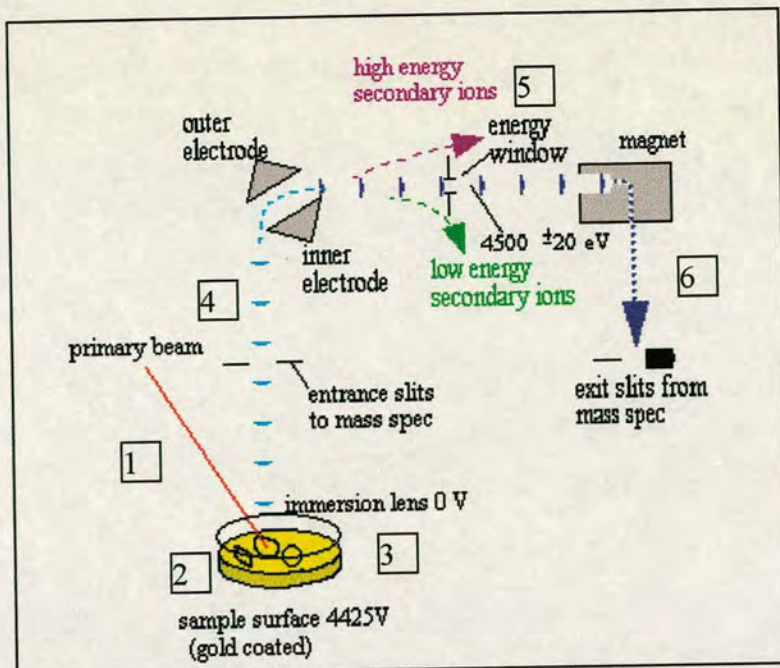 high energy
secondary ions
5
outer
electrode
energy
window
magnet
4500 ±20 eV
inner
electrode
low energy
secondary ions
4
6
primary beam
entrance slits
to mass spec
exit slits from
mass spec
1
immersion lens 0 V
2
3
sample surface 4425V
(gold coated)